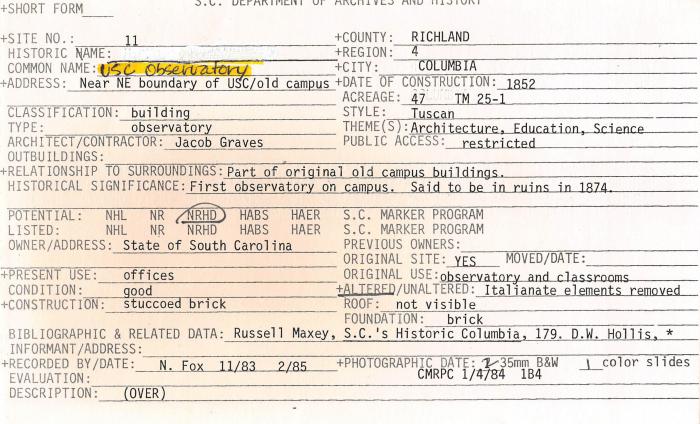 S.C. DEPARTMENT OF ARCHIVES AND HISTORY
+SHORT FORM
+SITE NO.: 11 +COUNTY: RICHLAND
HISTORIC NAME: +REGION: 4
COMMON NAME: USC Observatory +CITY: COLUMBIA
+ADDRESS: Near NE boundary of USC/old campus +DATE OF CONSTRUCTION: 1852
ACREAGE: 47 TM 25-1
CLASSIFICATION: building STYLE: Tuscan
TYPE: observatory THEME(S): Architecture, Education, Science
ARCHITECT/CONTRACTOR: Jacob Graves PUBLIC ACCESS: restricted
OUTBUILDINGS:
+RELATIONSHIP TO SURROUNDINGS: Part of original old campus buildings.
HISTORICAL SIGNIFICANCE: First observatory on campus. Said to be in ruins in 1874.
POTENTIAL: NHL NR NRHD HABS HAER S.C. MARKER PROGRAM
LISTED: NHL NR NRHD HABS HAER S.C. MARKER PROGRAM
OWNER/ADDRESS: State of South Carolina PREVIOUS OWNERS:
ORIGINAL SITE: YES MOVED/DATE:
+PRESENT USE: offices ORIGINAL USE: observatory and classrooms
CONDITION: good +ALTERED/UNALTERED: Italianate elements removed
+CONSTRUCTION: stuccoed brick ROOF: not visible
FOUNDATION: brick
BIBLIOGRAPHIC & RELATED DATA: Russell Maxey, S.C.'s Historic Columbia, 179. D.W. Hollis, *
INFORMANT/ADDRESS:
+RECORDED BY/DATE: N. Fox 11/83 2/85 +PHOTOGRAPHIC DATE: 2 35mm B&W 1 color slides
EVALUATION: CMRPC 1/4/84 1B4
DESCRIPTION: (OVER)